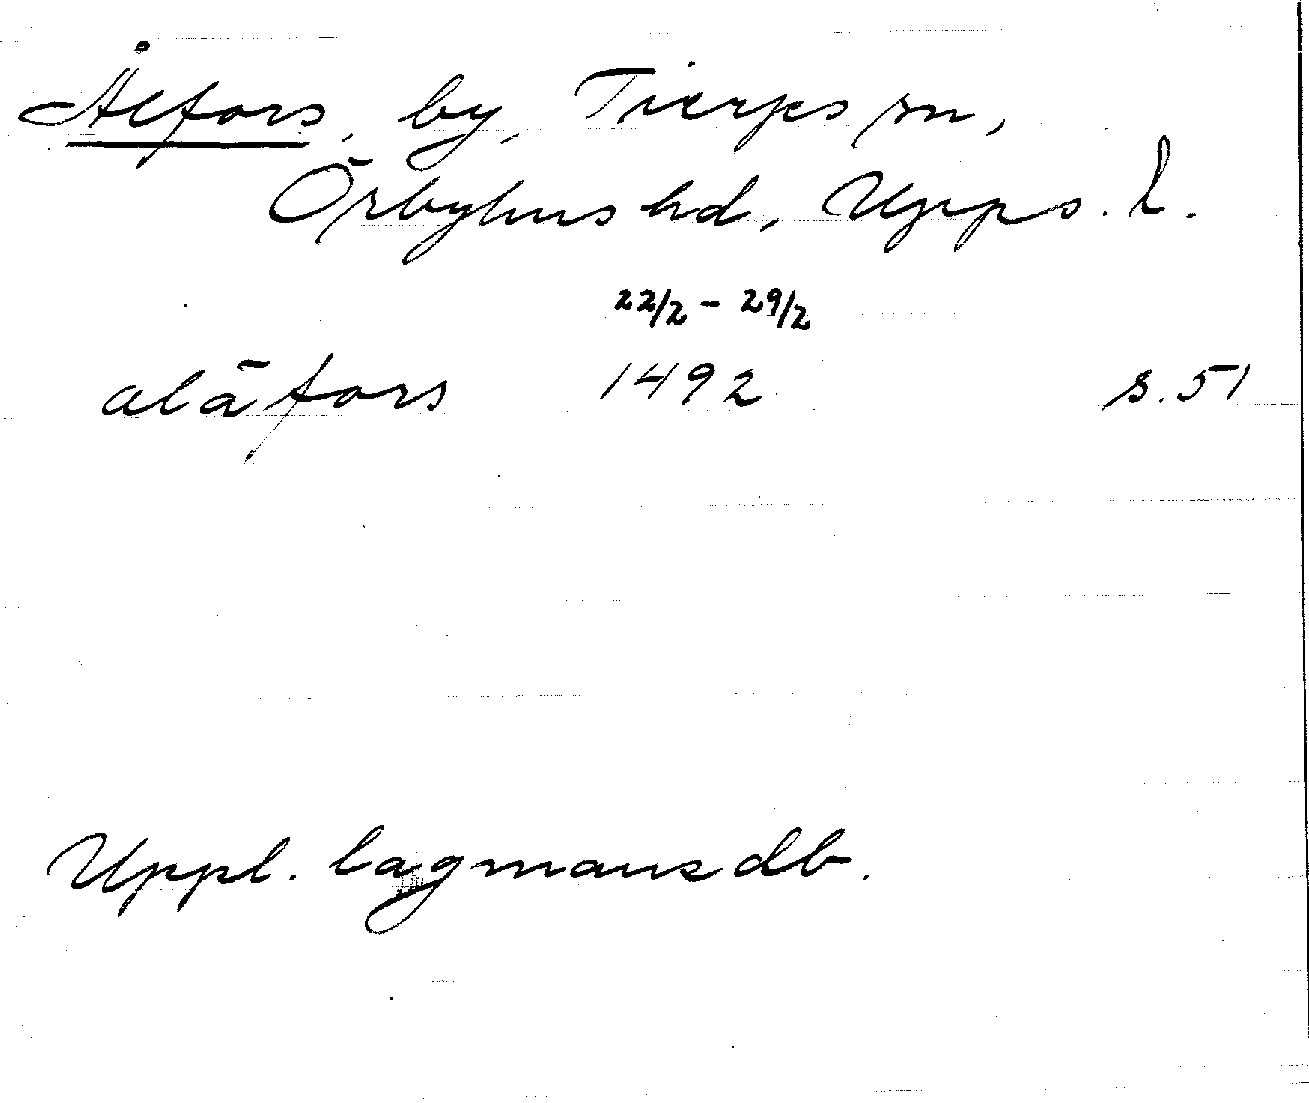 Ålfors, by, Tierps sn,
Örbyhus hd, Upps. l.
22/2 - 29/2
alāfors 1492 s. 51
Uppl. lagmansdb.